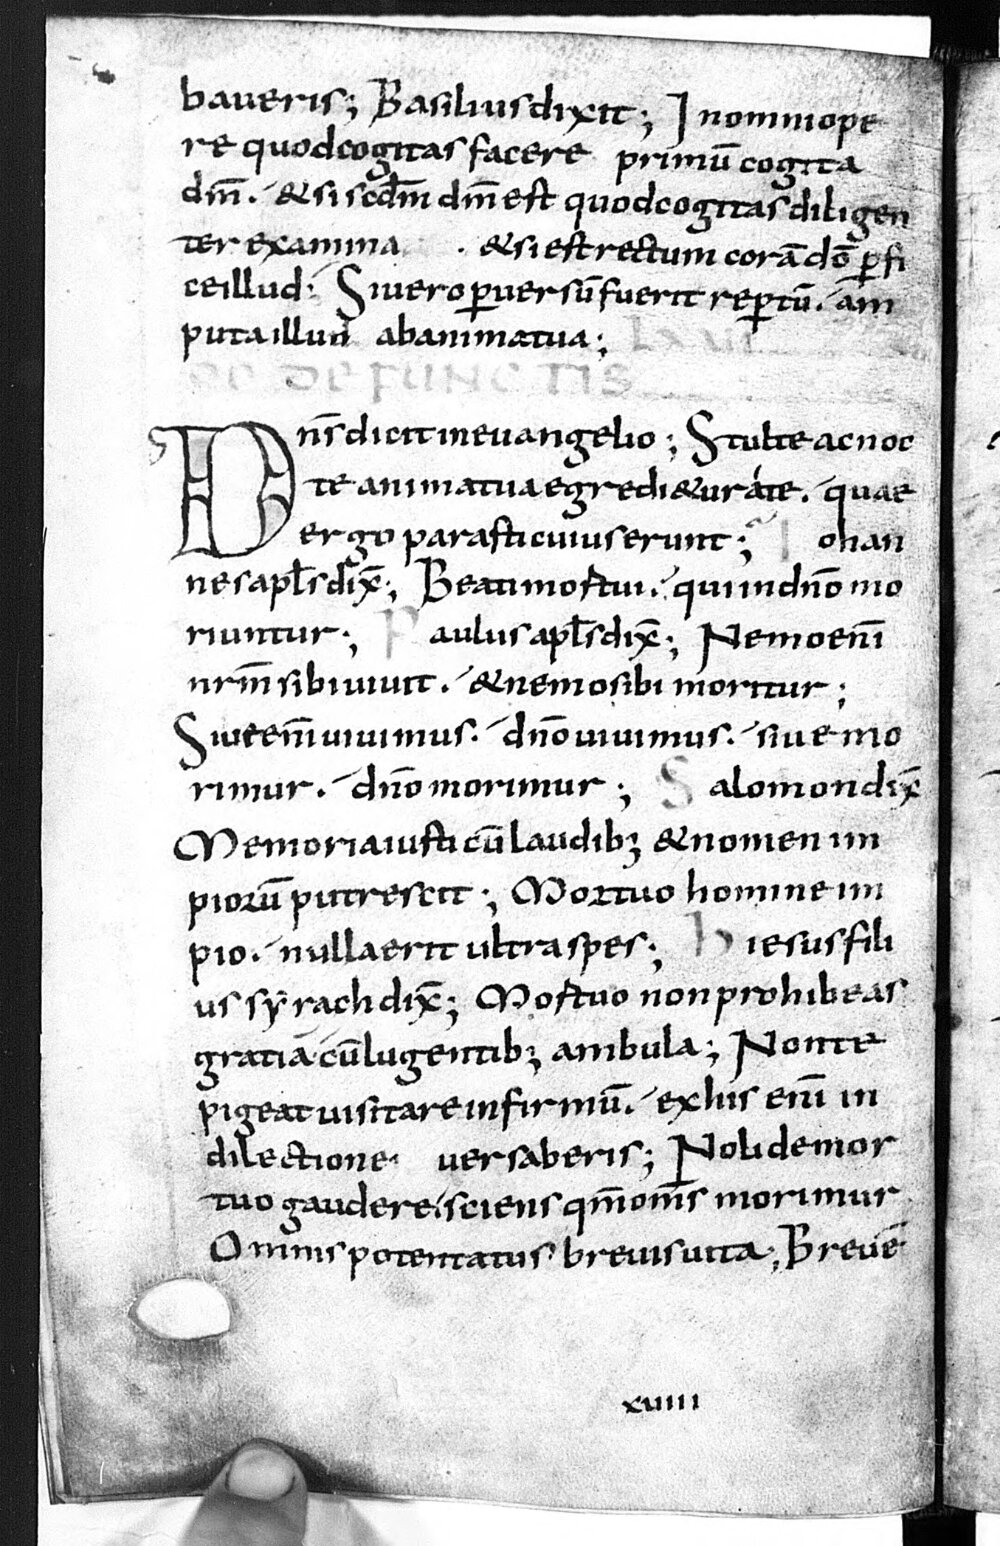 baueris; Basilius dixit; In omni ope
re quod cogitas facere primū cogita
dm̄. & si scdm̄ dm̄ est quod cogitas diligen
ter examina. & si est rectum corā dō ꝑfi
ce illud. Si uero ꝑuersū fuerit reꝑtū. am
puta illud ab anima tua; LXVII
DE DEFUNCTIS
Dn̄s dicit in euangelio; Stulte ac noc
te anima tua egredi&ur a te. quae
ergo parasti cuius erunt; Iohan
nes apl̄s dix̄; Beati mortui. qui in dn̄o mo
riuntur; Paulus apl̄s dix̄; Nemo enī
nrm̄ sibi uiuit. & nemo sibi moritur;
Siue enī uiuimus. dn̄o uiuimus. siue mo
rimur. dn̄o morimur; Salomon dix̄
Memoria iusti cū laudib; & nomen im
piorū putrescit; Mortuo homine im
pio. nulla erit ultra spes; Hiesus fili
us sẏrach dix̄; Mortuo non prohibeas
gratiā cū lugentib; ambula; Non te
pigeat uisitare infirmū. ex his enī in
dilectione uersaberis; Noli de mor
tuo gaudere. sciens qm̄ oms̄ morimur
Omnis potentatus breuis uita; Breuē
xuiiii